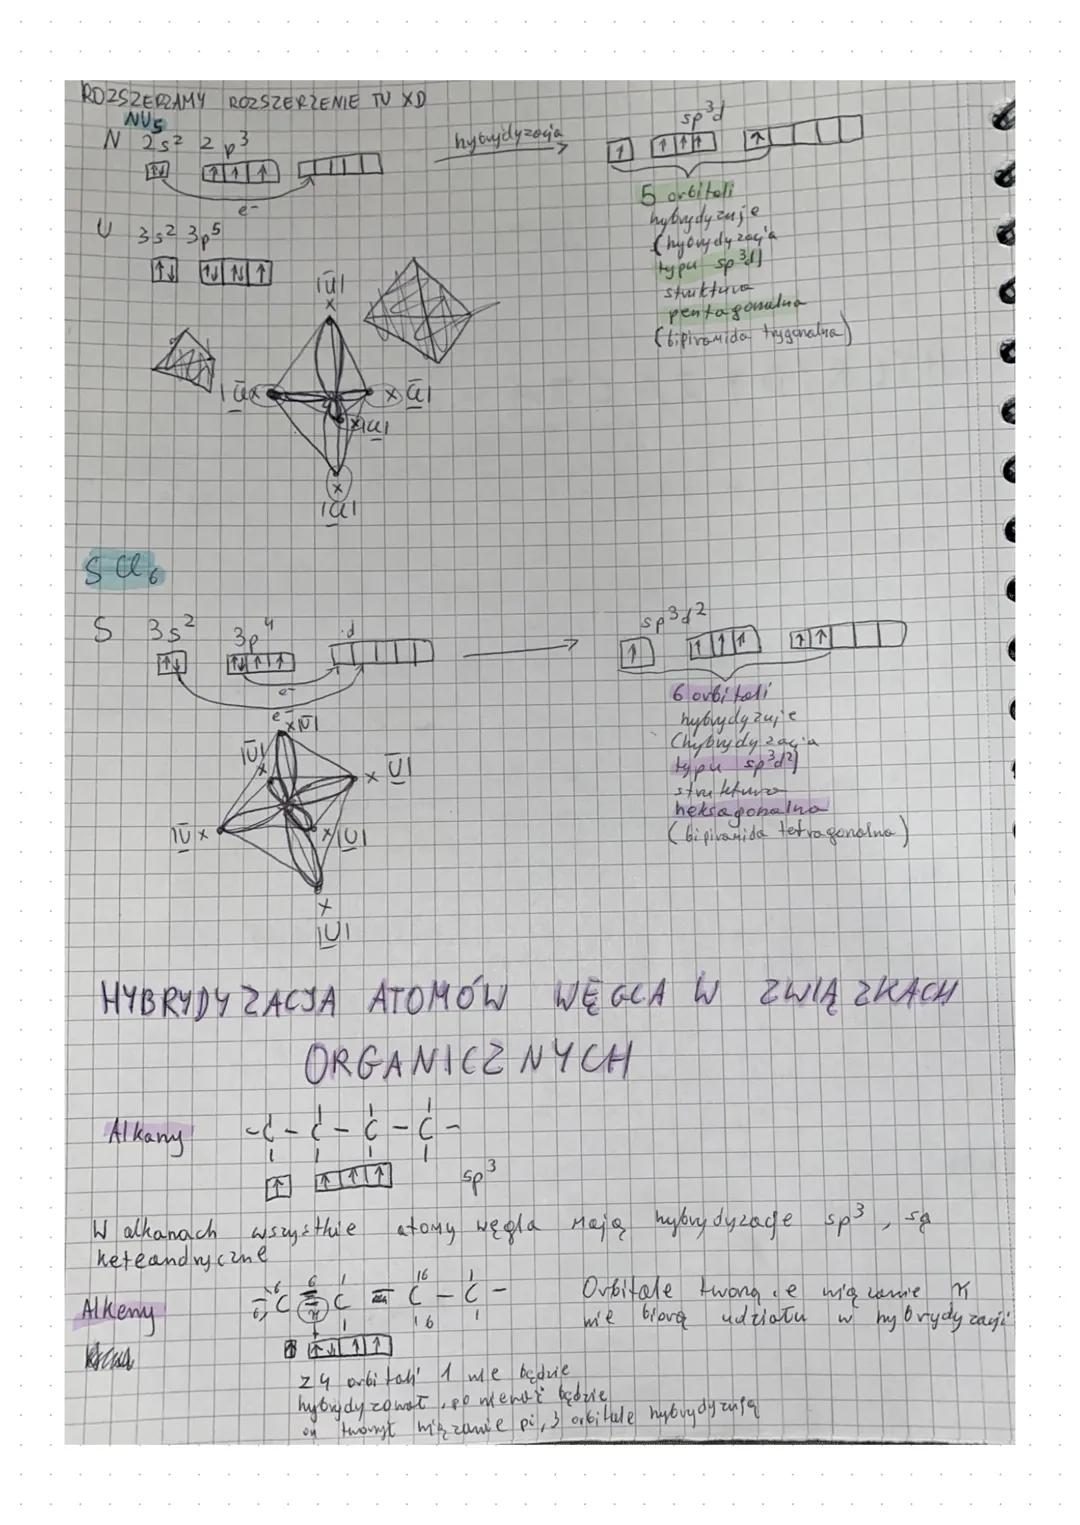 ROZSZERZAMY ROZSZERZENIE TU XD
NU5
N 2s² 2p³
hybrydyzacja
sp³d
e-
U 3s² 3p⁵
5 orbitali
hybrydyzuje
(hybrydyzacja
typu sp³d)
struktura
pentagonalna
(bipiramida trygonalna)
|Ū|
x
x
x
x
x
S Cl6
S 3s² 3p⁴ d
sp³d²
e-
e-
6 orbitali
hybrydyzuje
(hybrydyzacja
typu sp³d²)
struktura
heksagonalna
(bipiramida tetragonalna)
x|Ū|
|Ū|
x
x |Ū|
|Ū x
x |U|
x
|U|
HYBRYDYZACJA ATOMÓW WĘGLA W ZWIĄZKACH
ORGANICZNYCH
Alkany -C-C-C-C-
sp³
W alkanach wszystkie atomy węgla mają hybrydyzację sp³, są
Alkeny C = C = C - C -
Orbitale tworzące wiązanie π
nie biorą udziału w hybrydyzacji
z 4 orbitali 1 nie będzie
hybrydyzował, ponieważ będzie
on tworzył wiązanie pi, 3 orbitale hybrydyzują